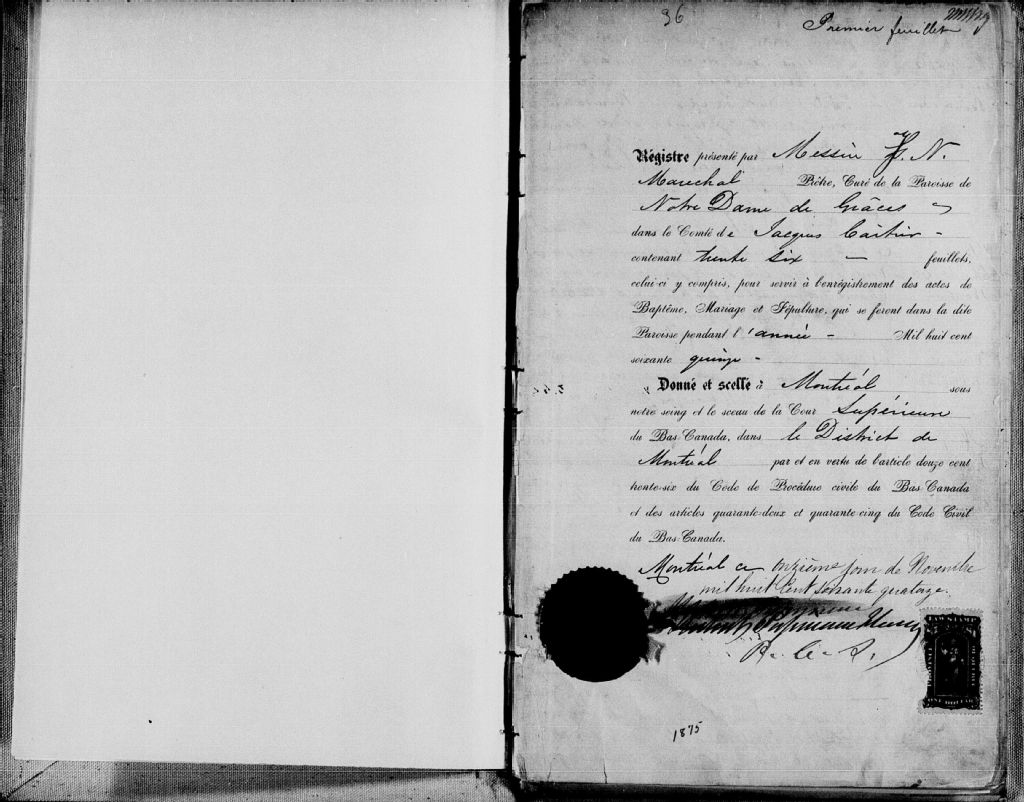 36
Premier feuillet
Régistre présenté par Messire N.
Marechal Prêtre, Curé de la Paroisse de
Notre Dame de Grâces
dans le Comté de Jacques Cartier -
contenant trente six — feuillets,
celui-ci y compris, pour servir à l'enrégistrement des actes de
Baptême, Mariage et Sépulture, qui se feront dans la dite
Paroisse pendant l'année - Mil huit cent
soixante quinze -
Donné et scellé à Montréal sous
notre seing et le sceau de la Cour Supérieure
du Bas-Canada, dans le District de
Montréal par et en vertu de l'article douze cent
trente-six du Code de Procédure civile du Bas-Canada
et des articles quarante-deux et quarante-cinq du Code Civil
du Bas-Canada.
Montréal ce onzième jour de Novembre
mil huit cent soixante quatorze.
LAW STAMP
ONE DOLLAR
1875